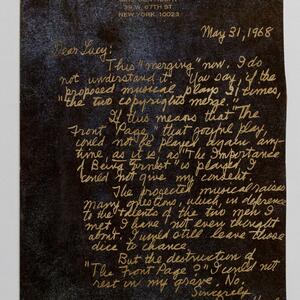 39 W. 67TH ST.
NEW YORK, 10023
May 31, 1968
Dear Lucy:
This "merging" now. I do
not understand it. You say, if the
proposed musical plays 21 times,
"the two copyrights merge."
If this means that "The
Front Page," that joyful play,
could not be played again any-
time, as it is, as "The Importance
of Being Earnest" is played, I
could not give my consent.
The projected musical raises
many questions, which, in deference
to the talents of the two men I
met, I have not even thought
about. I would still leave those
dice to chance.
But the destruction of
"The Front Page"? I could not
rest in my grave. No.
Sincerely,